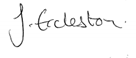 J. Eccleston.